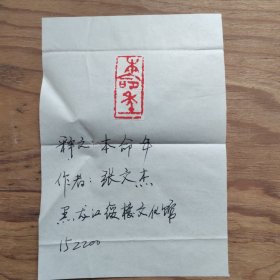 本命年
释文：本命年
作者：张文杰
黑龙江绥棱文化馆
152200